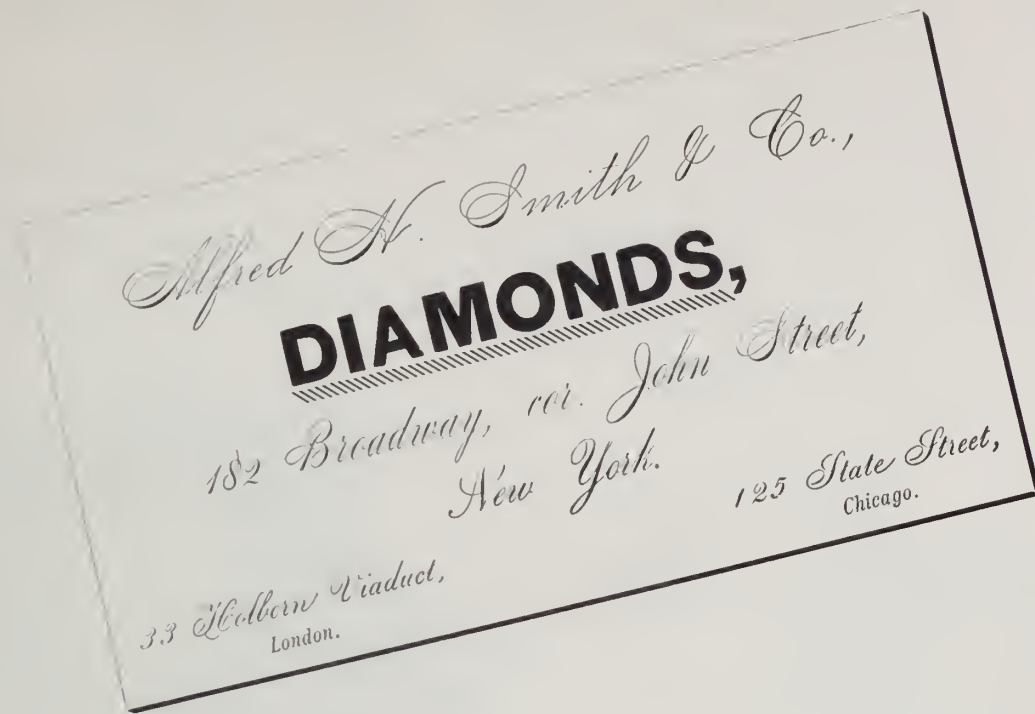 Alfred H. Smith & Co.,
DIAMONDS,
182 Broadway, cor. John Street,
New York.
125 State Street,
Chicago.
33 Holborn Viaduct,
London.